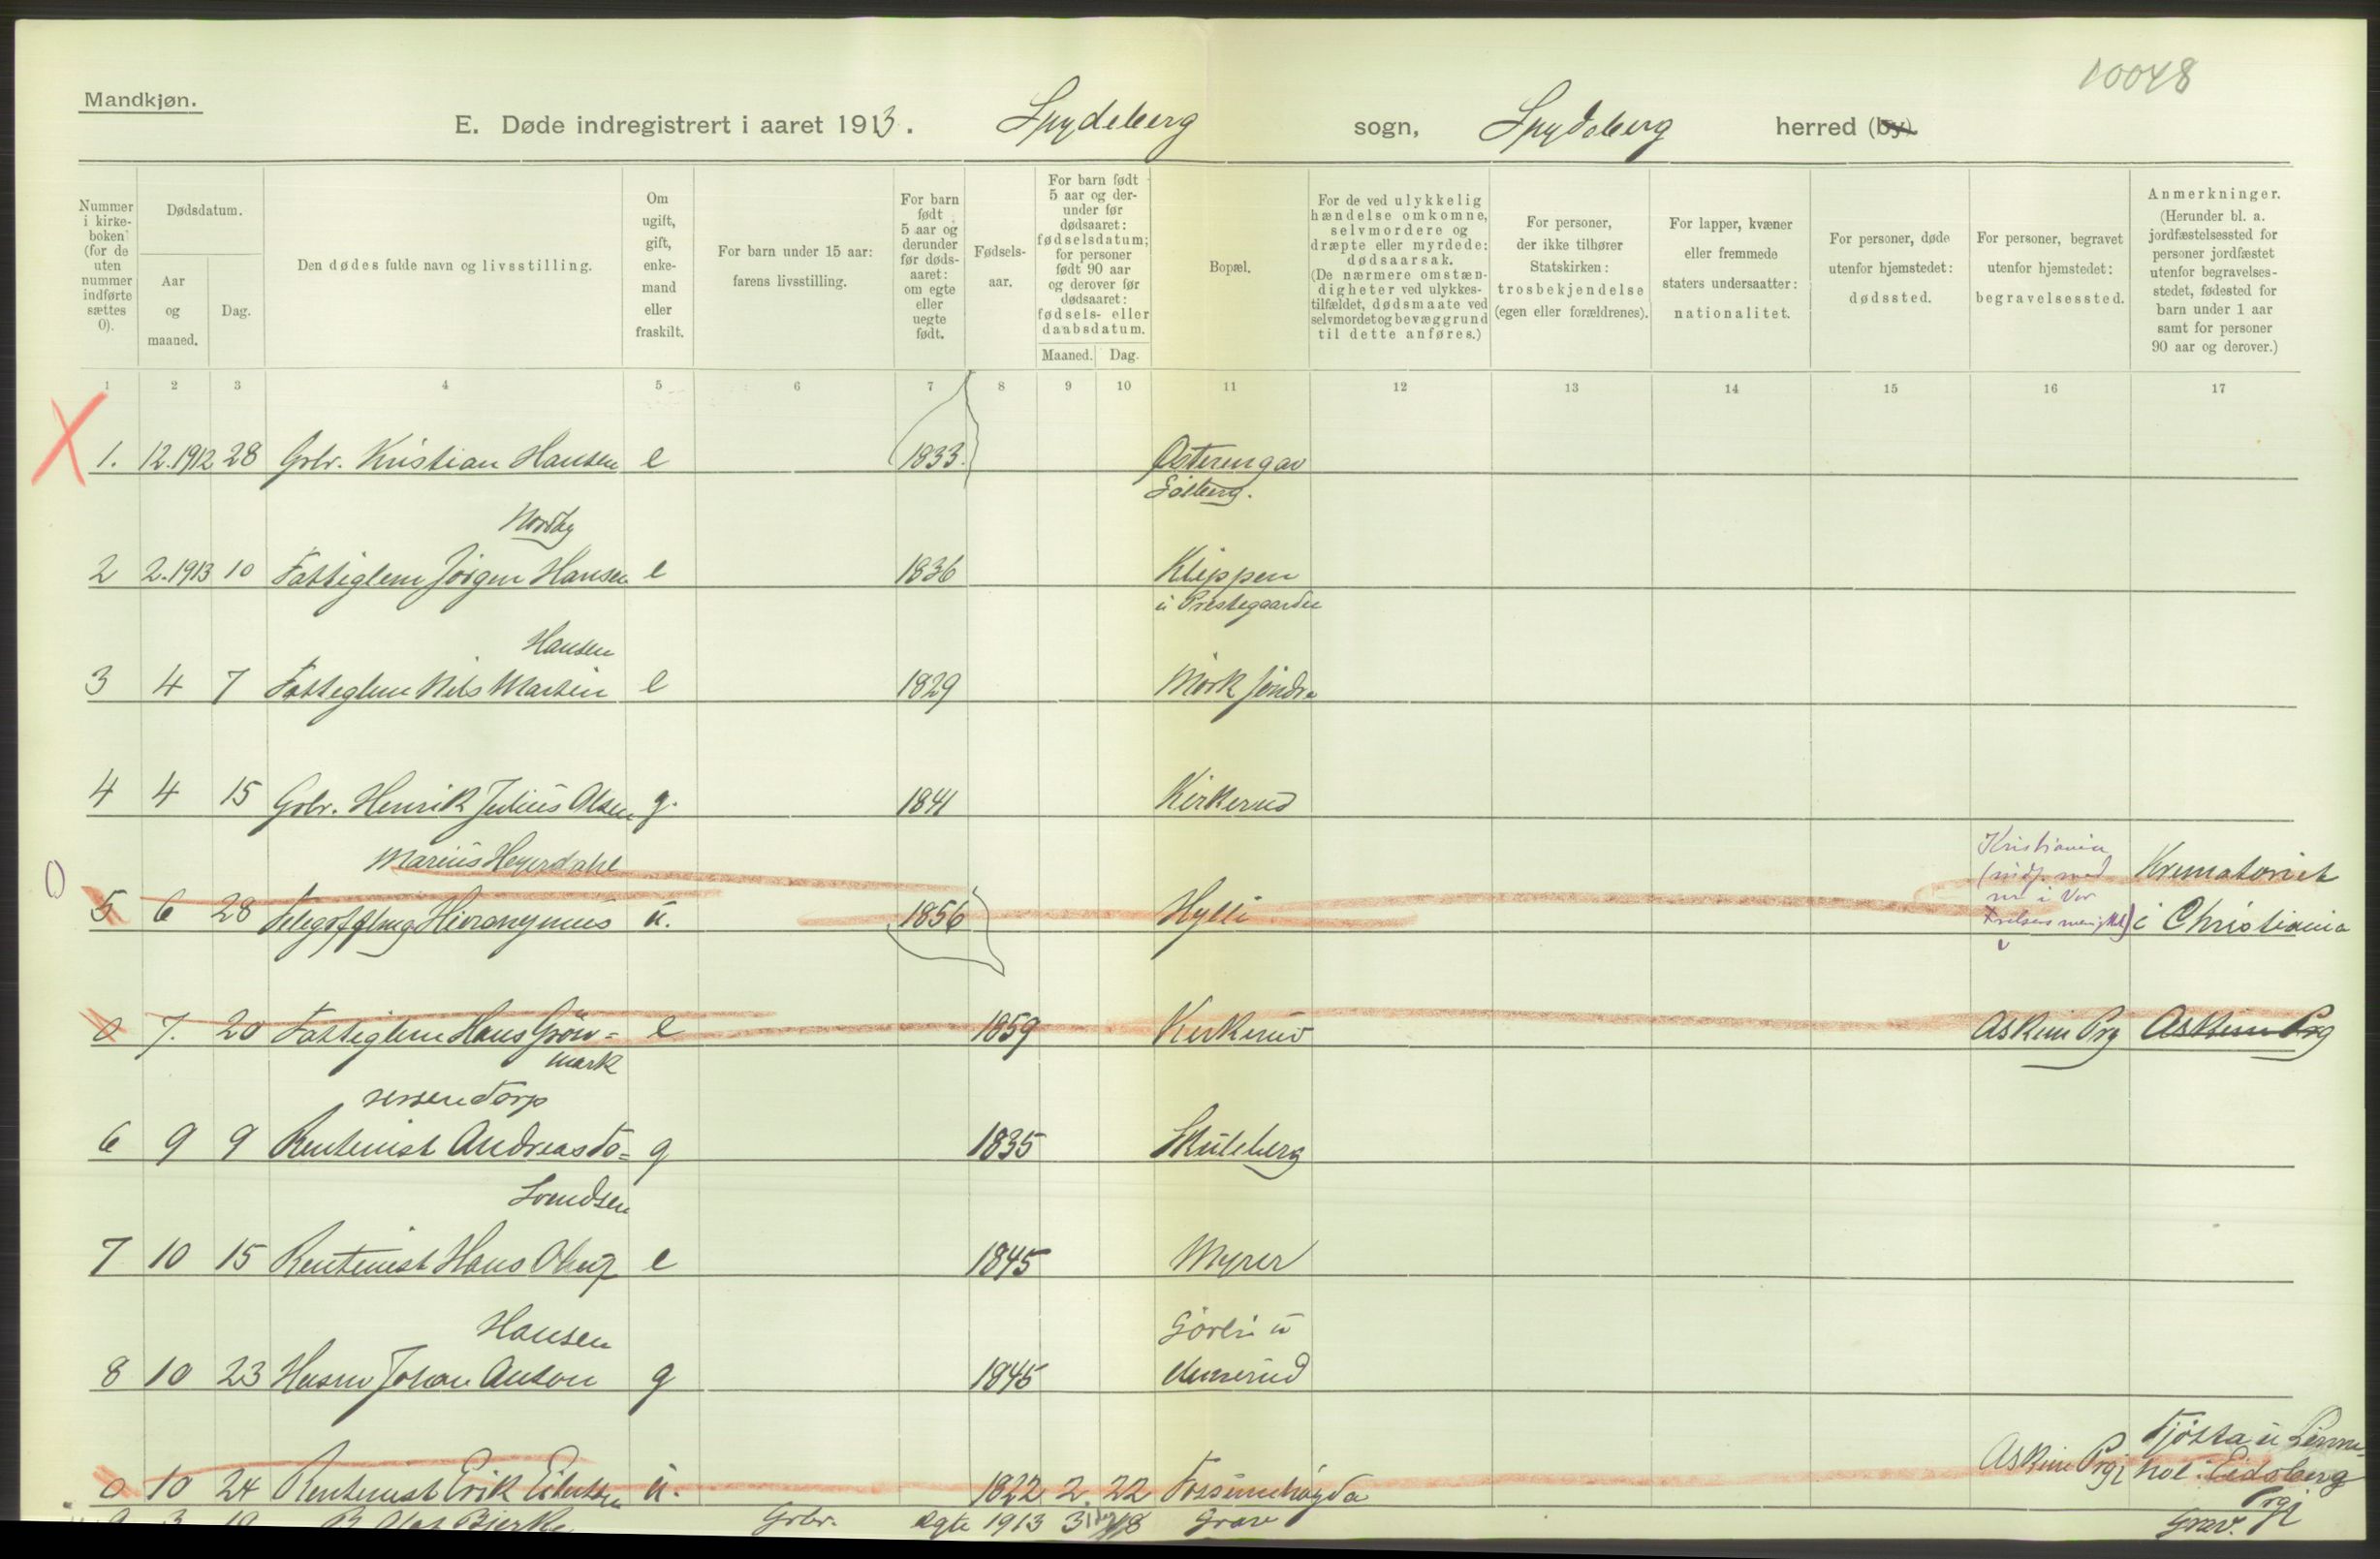 10048
Mandkjøn.
E. Døde indregistrert i aaret 1913. Spydeberg sogn, Spydeberg herred (by).
Nummer i kirke-boken (for de uten nummer indførte sættes 0).
Dødsdatum.
Aar og maaned.
Dag.
Den dødes fulde navn og livsstilling.
Om ugift, gift, enke-mand eller fraskilt.
For barn under 15 aar: farens livsstilling.
For barn født 5 aar og derunder før døds-aaret: om egte eller uegte født.
Fødsels-aar.
For barn født 5 aar og der-under før dødsaaret: fødselsdatum; for personer født 90 aar og derover før dødsaaret: fødsels- eller daabsdatum.
Maaned. Dag.
Bopæl.
For de ved ulykkelig hændelse omkomne, selvmordere og dræpte eller myrdede: dødsaarsak. (De nærmere omstæn-digheter ved ulykkes-tilfældet, dødsmaate ved selvmordet og bevæggrund til dette anføres.)
For personer, der ikke tilhører Statskirken: trosbekjendelse (egen eller forældrenes).
For lapper, kvæner eller fremmede staters undersaatter: nationalitet.
For personer, døde utenfor hjemstedet: dødssted.
For personer, begravet utenfor hjemstedet: begravelsessted.
Anmerkninger. (Herunder bl. a. jordfæstelsessted for personer jordfæstet utenfor begravelses-stedet, fødested for barn under 1 aar samt for personer 90 aar og derover.)
1 2 3 4 5 6 7 8 9 10 11 12 13 14 15 16 17
1. 12.1912 28 Grbr. Kristian Hansen e 1833. Østerengav
Solberg.
Nordby
2 2.1913 10 Fattiglem Jörgen Hansen e 1836 Klippen
u Prestegaarden
Hansen
3 4 7 Fattiglem Nils Martin e 1829 Mörk söndre
4 4 15 Grbr. Henrik Julius Olsen g. 1841 Kirkerud
Marius Heyerdahl Kristiania Krematoriet
5 6 28 Hieronymus u. 1856 Hylli i Christiania
0 7. 20 Fattiglem Hans Grön= e 1859 Kirkerud Askim Prg Askim Prg
mark
nessen Torp
6 9 9 Rentenist Andreas To= g 1835 Skuleberg
Svendsen
7 10 15 Rentenist Hans Olaug e 1845 Myrer
Hansen Sörli u
8 10 23 Husm Johan Anton g 1845 Unnerud
0 10 24 Rentenist Erik Eilertsen u. 1822 2. 22 Fossumhögda Askim Prgj Tjösta u
Eidsberg
Prgj
9 3 19 Olaf Bjerke Grbr. egte 1913 3 18 Grav Grav.